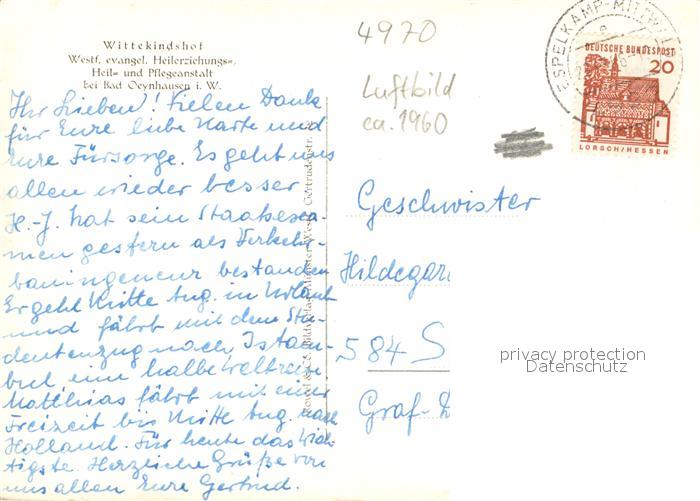 Wittekindshof
Westf. evangel. Heilerziehungs-,
Heil- und Pflegeanstalt
bei Bad Oeynhausen i. W.
Ihr Lieben! Vielen Dank
für Eure liebe Karte und
Eure Fürsorge. Es geht uns
allen wieder besser
H.-J. hat sein Staatsexa-
men gestern als Verkehrs-
bauingenieur bestanden
Er geht Mitte Aug. in Urlaub
und fährt mit dem Stu-
dentenzug nach Istam-
bul eine halbe Weltreise
Matthias fährt mit einer
Freizeit bis Mitte Aug. nach
Holland. Für heute das Wich-
tigste. Herzliche Grüße von
uns allen Eure Gertrud.
Gertrudenstr.
4970
Luftbild
ca. 1960
ESPELKAMP-MITTWALD
DEUTSCHE BUNDESPOST
20
LORSCH/HESSEN
Geschwister
Hildegar
584 S
Graf-
privacy protection
Datenschutz